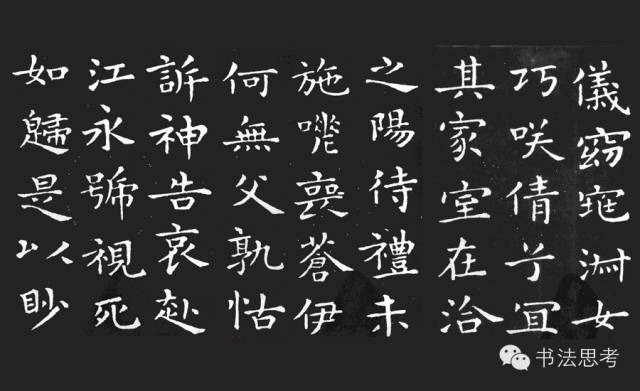 儀窈窕淑女
巧咲倩兮宜
其家室在洽
之陽待禮未
施嗟喪蒼伊
何無父孰怙
訴神告哀赴
江永號視死
如歸是以眇
书法思考